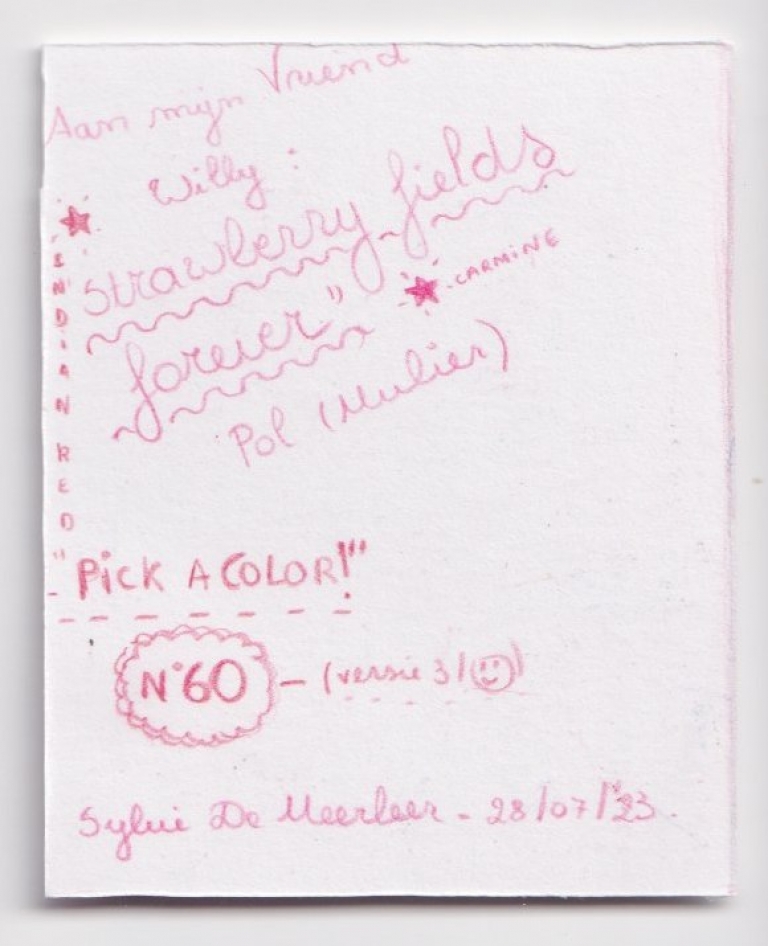 Aan mijn Vriend
Willy:
strawberry fields
forever"
CARMINE
Pol (Mulier)
INDIAN RED
"PICK A COLOR!"
N°60 - (versie 3/☺)
Sylvie De Meerleer - 28/07/'23.